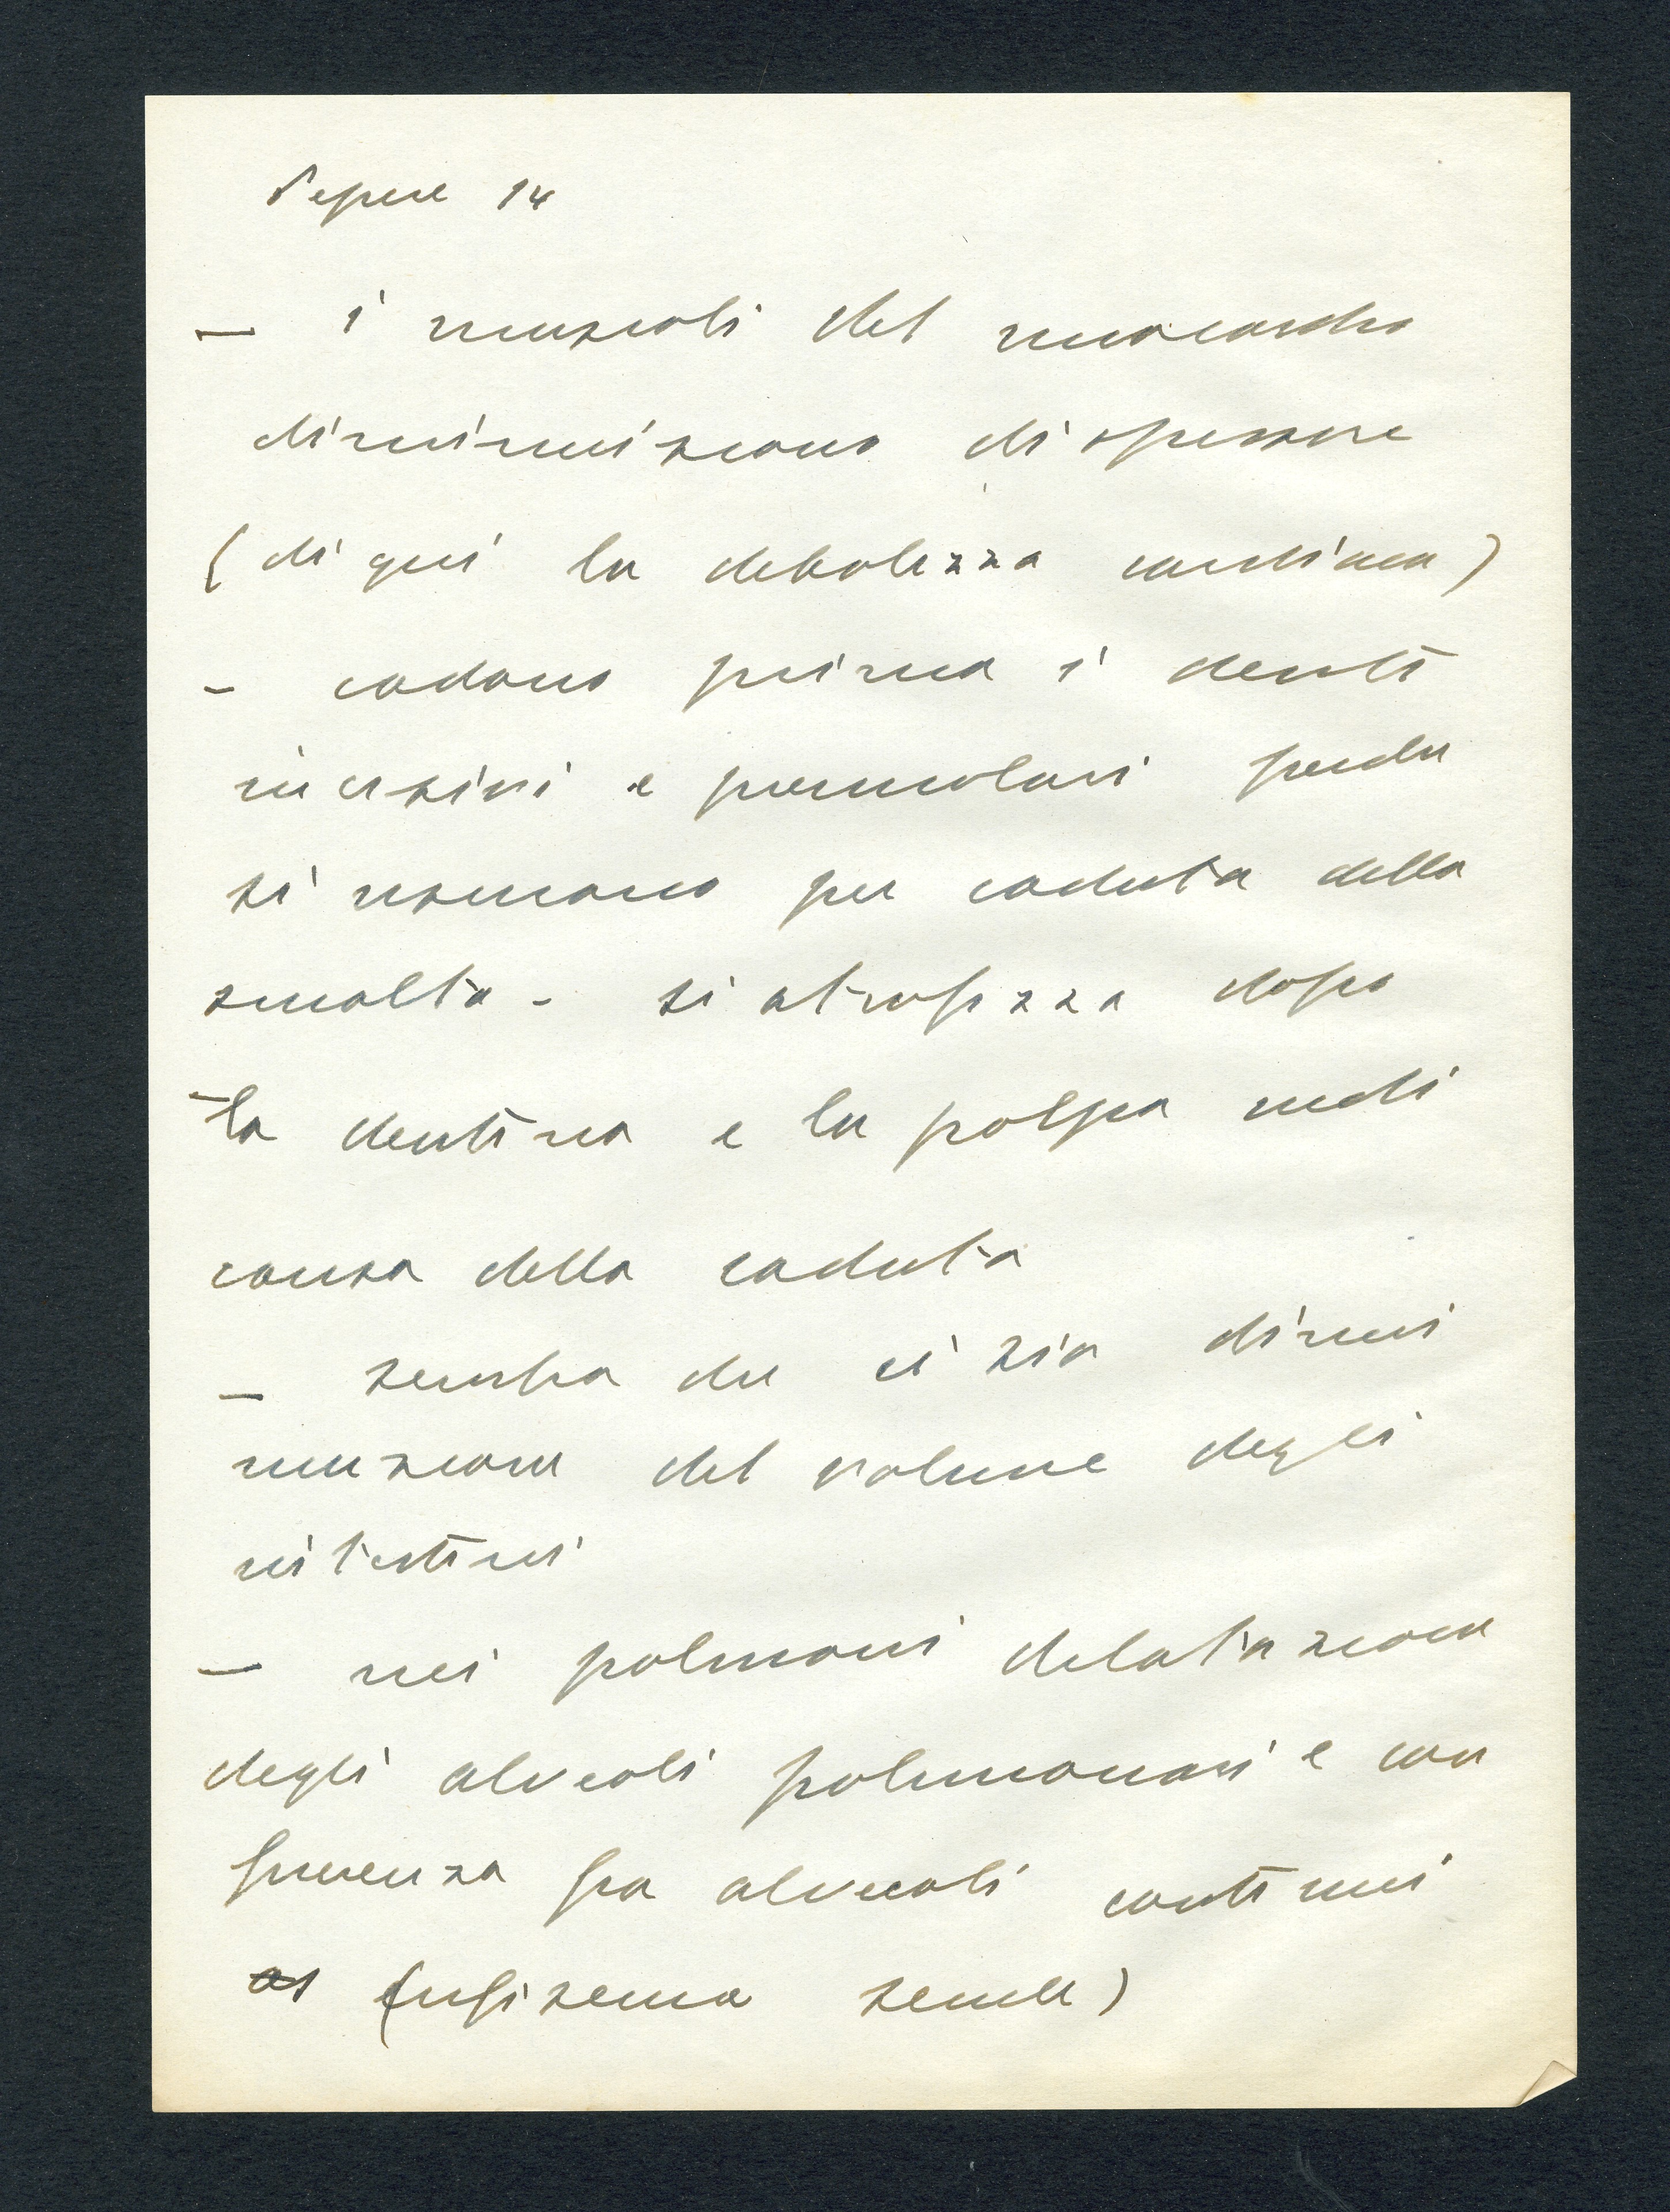 Pepere 14
– i muscoli del miocardio
diminuiscono di spessore
(di qui la debolezza cardiaca)
– cadono prima i denti
incisivi e premolari perche
si usurano per caduta dello
smalto – si atrofizza dopo
la dentina e la polpa indi
causa della caduta
– sembra che ci sia dimi
nuzione del volume degli
intestini
– nei polmoni delatazione
degli alveoli polmonari e con
fluenza fra alveoli continui
(enfisema senile)